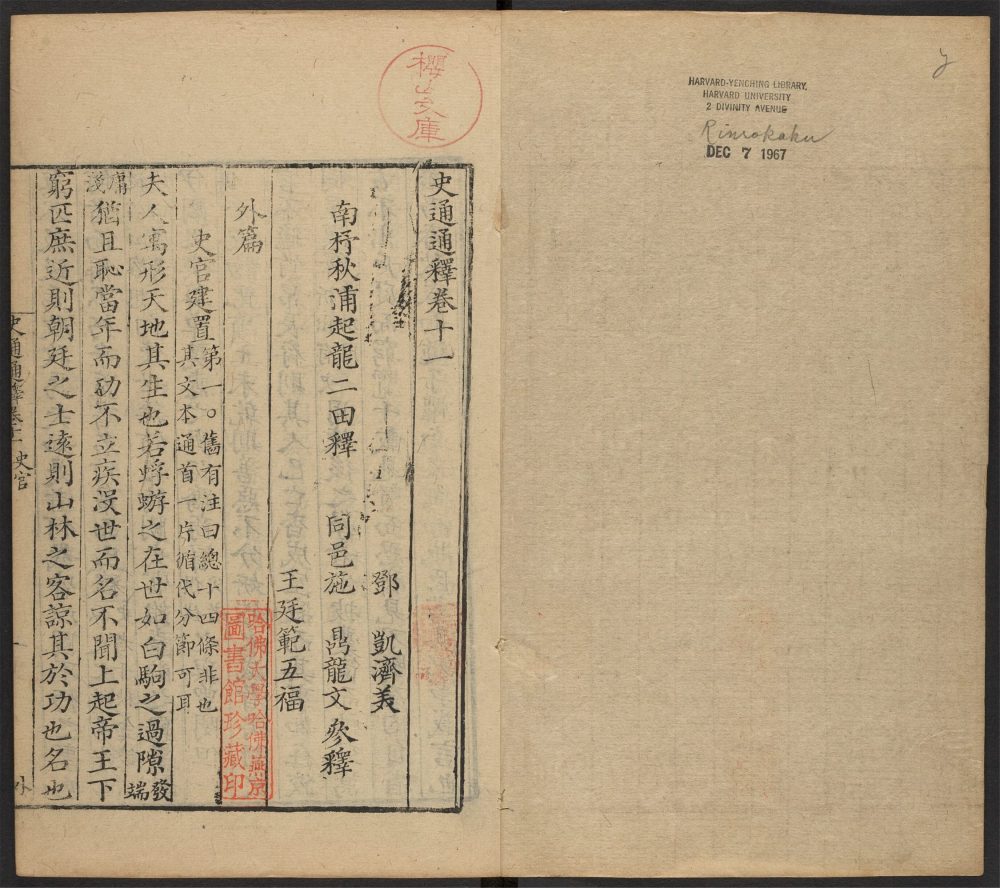 HARVARD-YENCHING LIBRARY
HARVARD UNIVERSITY
2 DIVINITY AVENUE
Rinrokaku
DEC 7 1967
櫻山文庫
史通通釋卷十一
鄧 凱濟美
南杼秋浦起龍二田釋 同邑施 鼎龍文參釋
王廷範五福
外篇
史官建置
第一○舊有注曰總十四條非也
其文本通首一片循代分節可耳
夫人寓形天地其生也若蜉蝣之在世如白駒之過隙發端
膚淺猶且恥當年而功不立疾沒世而名不聞上起帝王下
窮匹庶近則朝廷之士遠則山林之客諒其於功也名也
史通通釋卷十一 史官 一 外
哈佛大學哈佛燕京
圖書館珍藏印